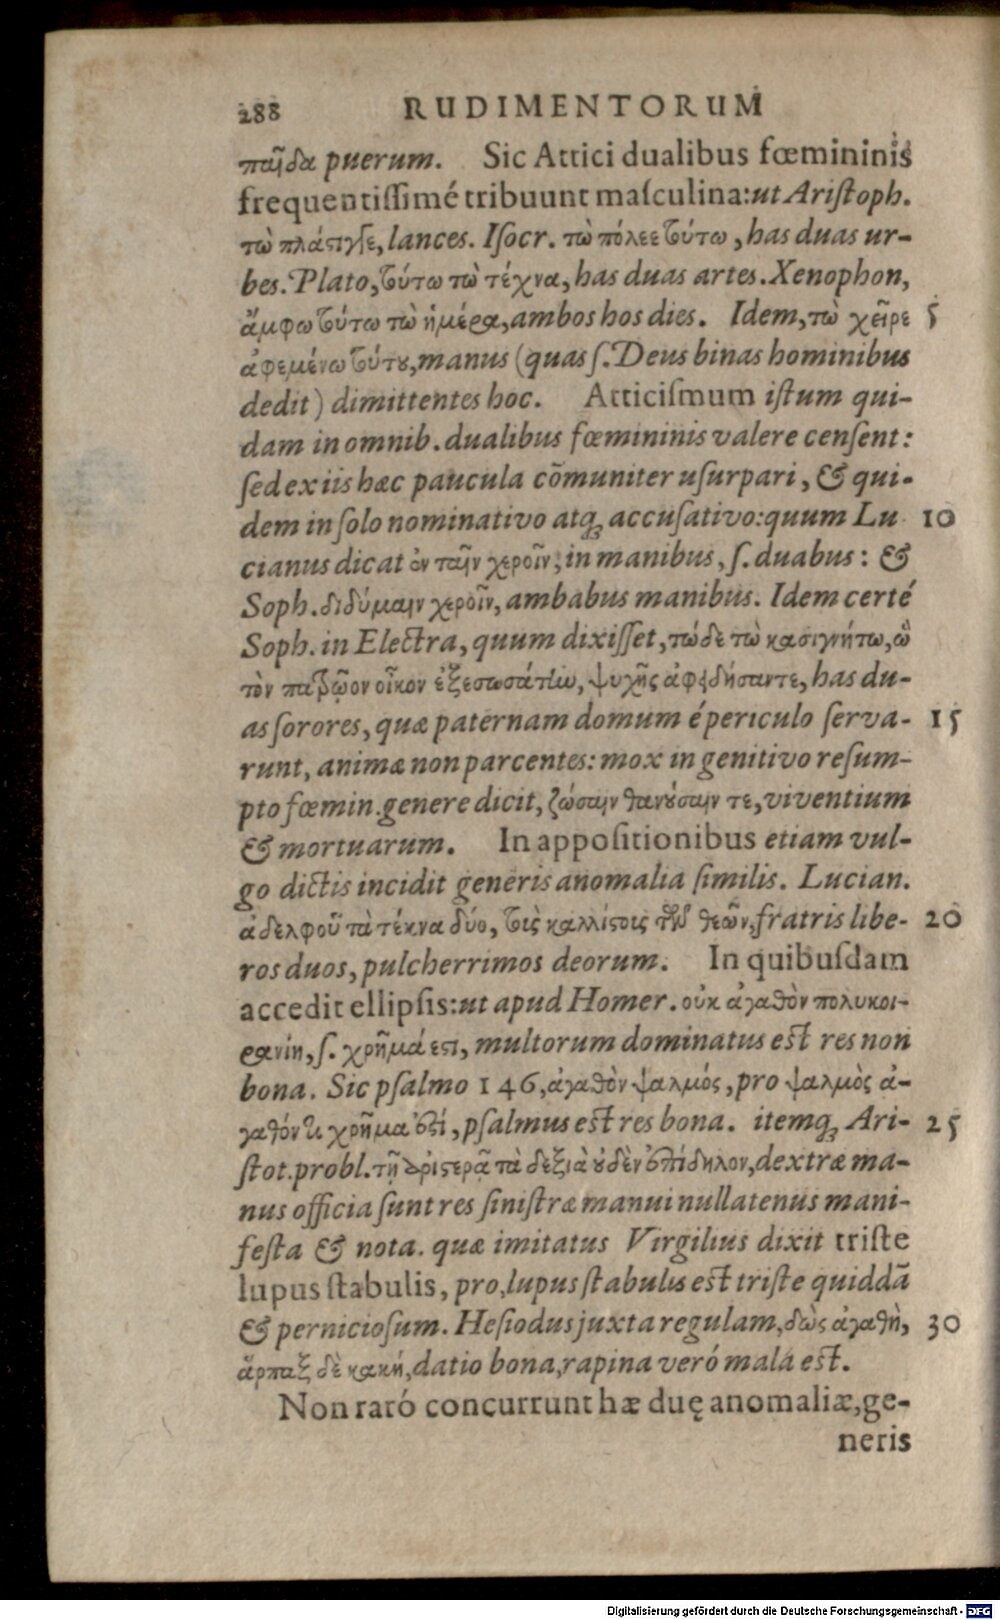 288 RUDIMENTORUM
παῖδα puerum. Sic Attici dualibus fœmininis
frequentiſſimé tribuunt maſculina: ut Ariſtoph.
τὼ πλάςιγγε, lances. Iſocr. τὼ πόλεε τούτω, has duas ur-
bes. Plato, τούτω τὼ τέχνα, has duas artes. Xenophon,
ἄμφω τούτω τὼ ἡμέρα, ambos hos dies. Idem, τὼ χεῖρε 5
ἀφεμένω τούτου, manus (quas ſ. Deus binas hominibus
dedit) dimittentes hoc. Atticiſmum iſtum qui-
dam in omnib. dualibus fœmininis valere cenſent:
ſed ex iis hæc paucula cõmuniter uſurpari, & qui-
dem in ſolo nominativo atq; accuſativo: quum Lu 10
cianus dicat ἐν ταῖν χεροῖν, in manibus, ſ. duabus: &
Soph. διδύμαιν χεροῖν, ambabus manibus. Idem certé
Soph. in Electra, quum dixiſſet, τώδε τὼ κασιγνήτω, ὣ
τὸν πατρῷον οἶκον ἐξεσωσάτην, ψυχῆς ἀφειδήσαντε, has du-
as ſorores, quæ paternam domum é periculo ſerva- 15
runt, animæ non parcentes: mox in genitivo reſum-
pto fœmin. genere dicit, ζώσαιν θανούσαιν τε, viventium
& mortuarum. In appoſitionibus etiam vul-
go dictis incidit generis anomalia ſimilis. Lucian.
ἀδελφοῦ τὰ τέκνα δύο, τοὶς καλλίςοις τῶν θεῶν, fratris libe- 20
ros duos, pulcherrimos deorum. In quibuſdam
accedit ellipſis: ut apud Homer. οὐκ ἀγαθὸν πολυκοι-
ρανίη, ſ. χρῆμά ἐςι, multorum dominatus eſt res non
bona. Sic pſalmo 146, ἀγαθὸν ψαλμός, pro ψαλμὸς ἀ-
γαθόν τι χρῆμα ἐςί, pſalmus eſt res bona. itemq; Ari- 25
ſtot. probl. τῇ ἀριςερᾷ τὰ δεξιὰ οὐδὲν ἐπίδηλον, dextræ ma-
nus officia ſunt res ſiniſtræ manui nullatenus mani-
feſta & nota. quæ imitatus Virgilius dixit triſte
lupus ſtabulis, pro, lupus ſtabulis eſt triſte quiddã
& pernicioſum. Heſiodus juxta regulam, δὼς ἀγαθὴ, 30
ἅρπαξ δὲ κακή, datio bona, rapina veró mala eſt.
Non raró concurrunt hæ duę anomaliæ, ge-
neris
Digitalisierung gefördert durch die Deutsche Forschungsgemeinschaft - DFG